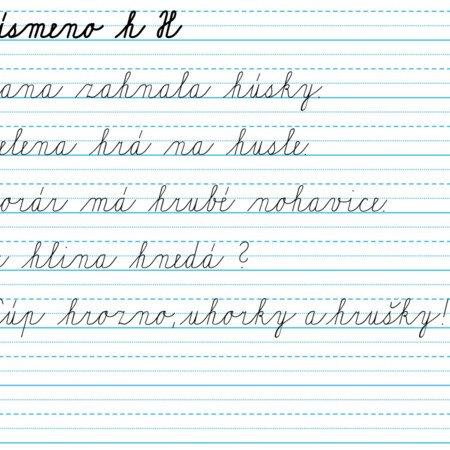 ísmeno h H
ana zahnala húsky.
elena hrá na husle.
orár má hrubé nohavice.
e hlina hnedá ?
Kúp hrozno, uhorky a hrušky!